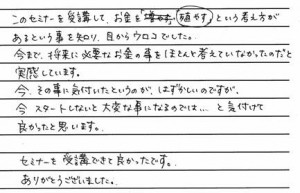 このセミナーを受講して、お金を「増やす」「殖やす」という考え方が
あるという事を知り、目からウロコでした。
今まで、将来に必要なお金の事をほとんど考えていなかったのだと
実感しています。
今、その事に気付いたというのが、はずかしいのですが、
今スタートしないと大変な事になるのでは… と気付けて
良かったと思います。
セミナーを受講できて良かったです。
ありがとうございました。